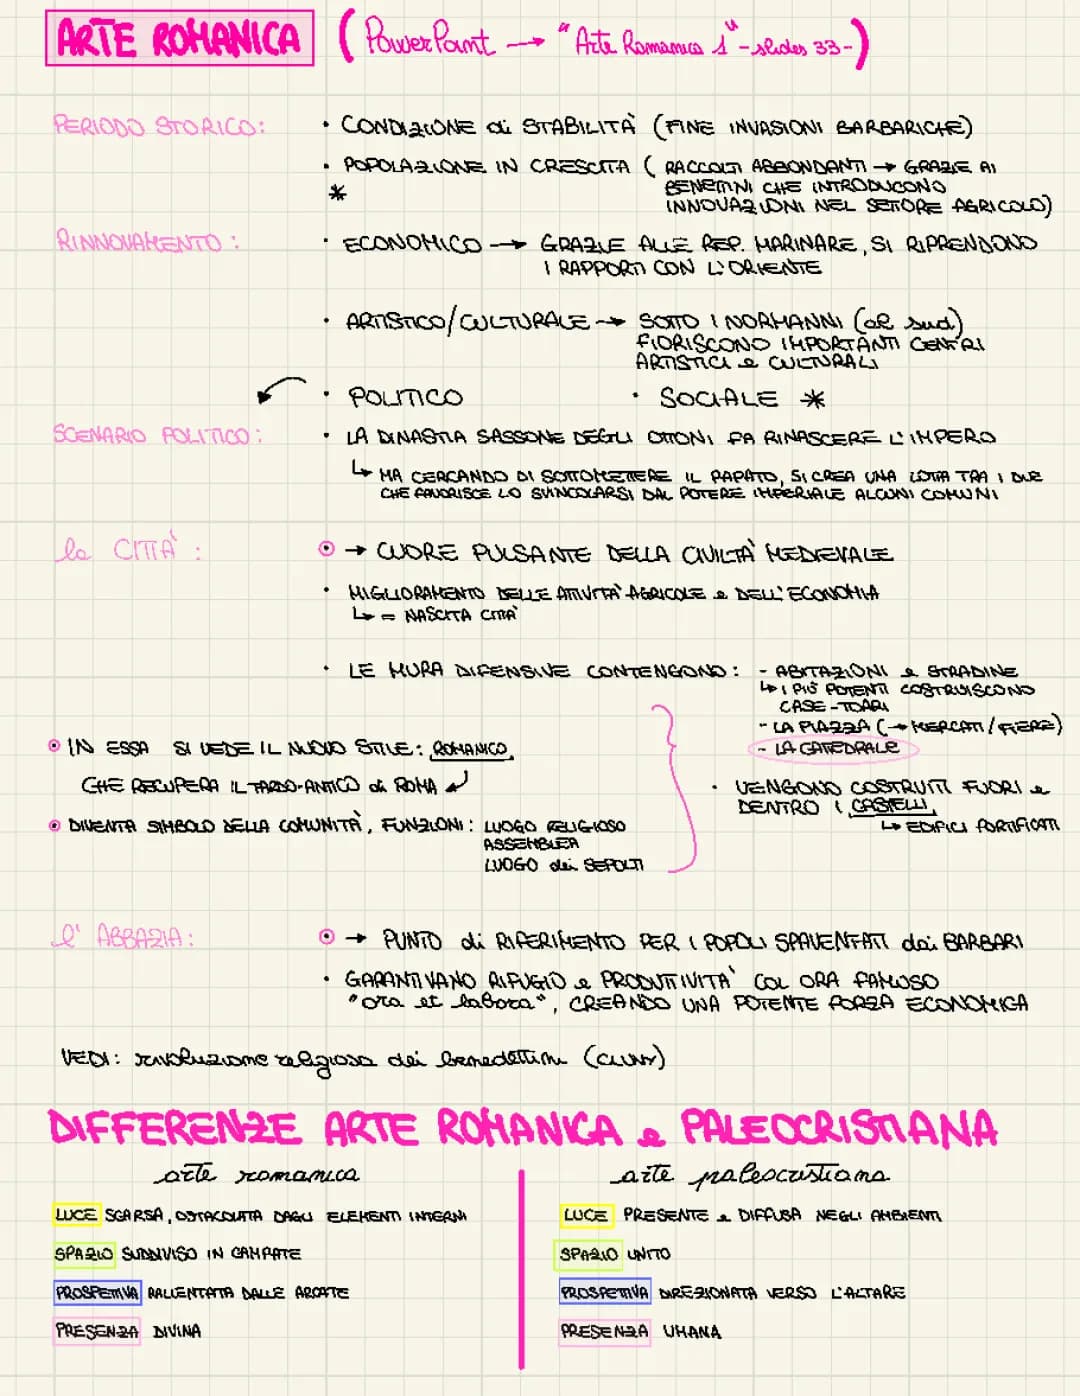 ARTE ROMANICA (PowerPoint → "Arte Romanica 1" - slides 33-)
PERIODO STORICO: • CONDIZIONE di STABILITÀ (FINE INVASIONI BARBARICHE)
• POPOLAZIONE IN CRESCITA (RACCOLTI ABBONDANTI → GRAZIE AI
* BENETTINI CHE INTRODUCONO
INNOVAZIONI NEL SETTORE AGRICOLO)
RINNOVAMENTO: • ECONOMICO → GRAZIE ALLE REP. MARINARE, SI RIPRENDONO
I RAPPORTI CON L'ORIENTE
• ARTISTICO/CULTURALE → SOTTO I NORMANNI (al sud)
FIORISCONO IMPORTANTI CENTRI
ARTISTICI e CULTURALI
• POLITICO • SOCIALE *
SCENARIO POLITICO: • LA DINASTIA SASSONE DEGLI OTTONI FA RINASCERE L'IMPERO
↳ MA CERCANDO DI SOTTOMETTERE IL PAPATO, SI CREA UNA LOTTA TRA I DUE
CHE FAVORISCE LO SVINCOLARSI DAL POTERE IMPERIALE ALCUNI COMUNI
la CITTÀ: → CUORE PULSANTE DELLA CIVILTÀ MEDIEVALE
• MIGLIORAMENTO DELLE ATTIVITÀ AGRICOLE e DELL'ECONOMIA
↳ = NASCITA CITTÀ
• LE MURA DIFENSIVE CONTENGONO: - ABITAZIONI e STRADINE
↳ I PIÙ POTENTI COSTRUISCONO
CASE-TORRI
- LA PIAZZA (→ MERCATI/FIERE)
- LA CATTEDRALE
IN ESSA SI VEDE IL NUOVO STILE: ROMANICO
CHE RECUPERA IL TARDO-ANTICO di ROMA
DIVENTA SIMBOLO DELLA COMUNITÀ, FUNZIONI: LUOGO RELIGIOSO
ASSEMBLEA
LUOGO dei SEPOLTI
• VENGONO COSTRUITI FUORI e
DENTRO I CASTELLI
↳ EDIFICI FORTIFICATI
l'ABBAZIA: → PUNTO di RIFERIMENTO PER I POPOLI SPAVENTATI dai BARBARI
• GARANTIVANO RIFUGIO e PRODUTTIVITÀ COL ORA FAMOSO
"ora et labora", CREANDO UNA POTENTE FORZA ECONOMICA
VEDI: rivoluzione religiosa dei benedettini (CLUNY)
DIFFERENZE ARTE ROMANICA e PALEOCRISTIANA
arte romanica
LUCE SCARSA, OSTACOLATA DAGLI ELEMENTI INTERNI
SPAZIO SUDDIVISO IN CAMPATE
PROSPETTIVA RALLENTATA DALLE ARCATE
PRESENZA DIVINA
arte paleocristiana
LUCE PRESENTE e DIFFUSA NEGLI AMBIENTI
SPAZIO UNITO
PROSPETTIVA DIREZIONATA VERSO L'ALTARE
PRESENZA UMANA